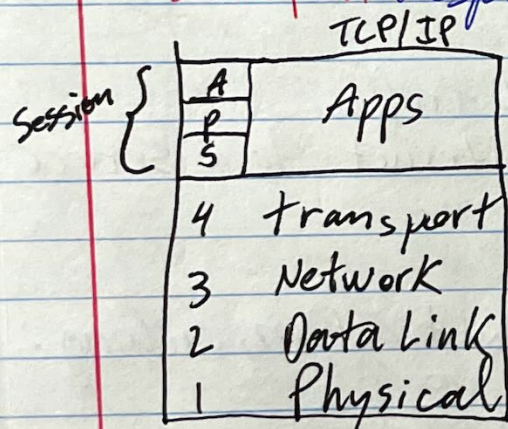 TCP/IP
Session
A
P
S
Apps
4 transport
3 Network
2 Data Link
1 Physical